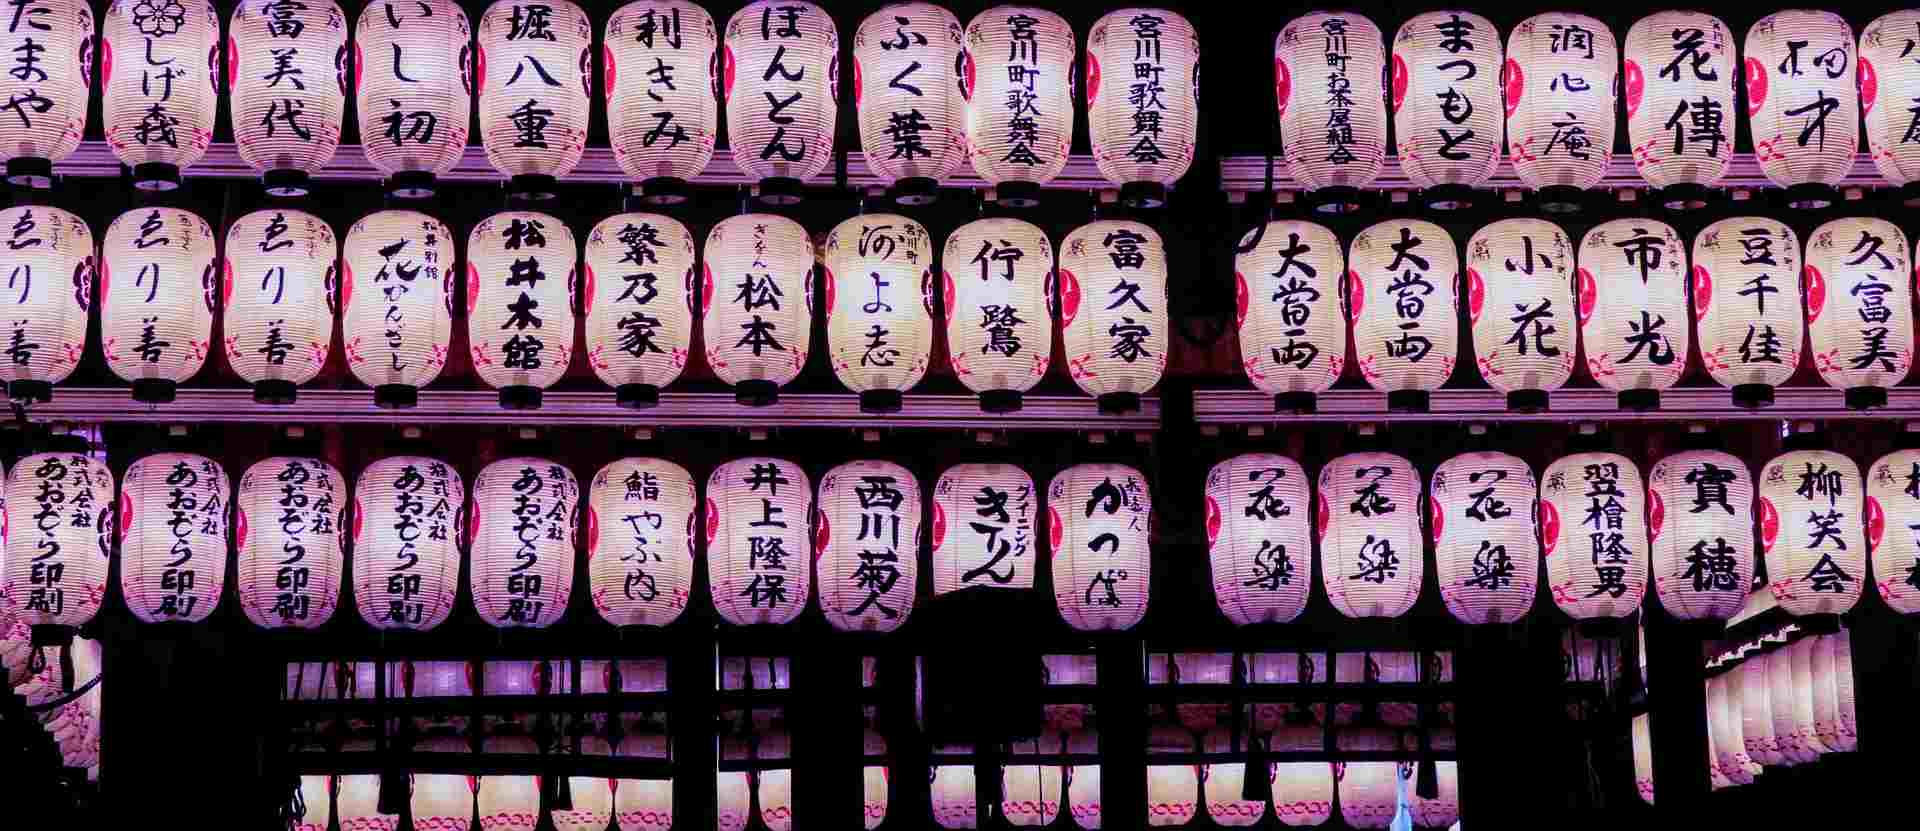 たまや
しげ森
富美代
いし初
堀八重
利きみ
ぼんとん
ふく葉
宮川町歌舞会
宮川町歌舞会
宮川町お茶屋組合
まつもと
潤心庵
花傳
ゑり善
ゑり善
ゑり善
松井別館
花かんざし
松井本館
繁乃家
ぎをん
松本
宮川町
河よ志
佇鷺
富久家
大當両
大當両
小花
市光
豆千佳
久富美
株式会社
あおぞら印刷
株式会社
あおぞら印刷
株式会社
あおぞら印刷
株式会社
あおぞら印刷
株式会社
あおぞら印刷
鮨
やぶ内
井上隆保
西川菊人
ダイニング
きてん
かっぱ
花梁
花梁
花梁
翌檜隆男
實穂
柳笑会